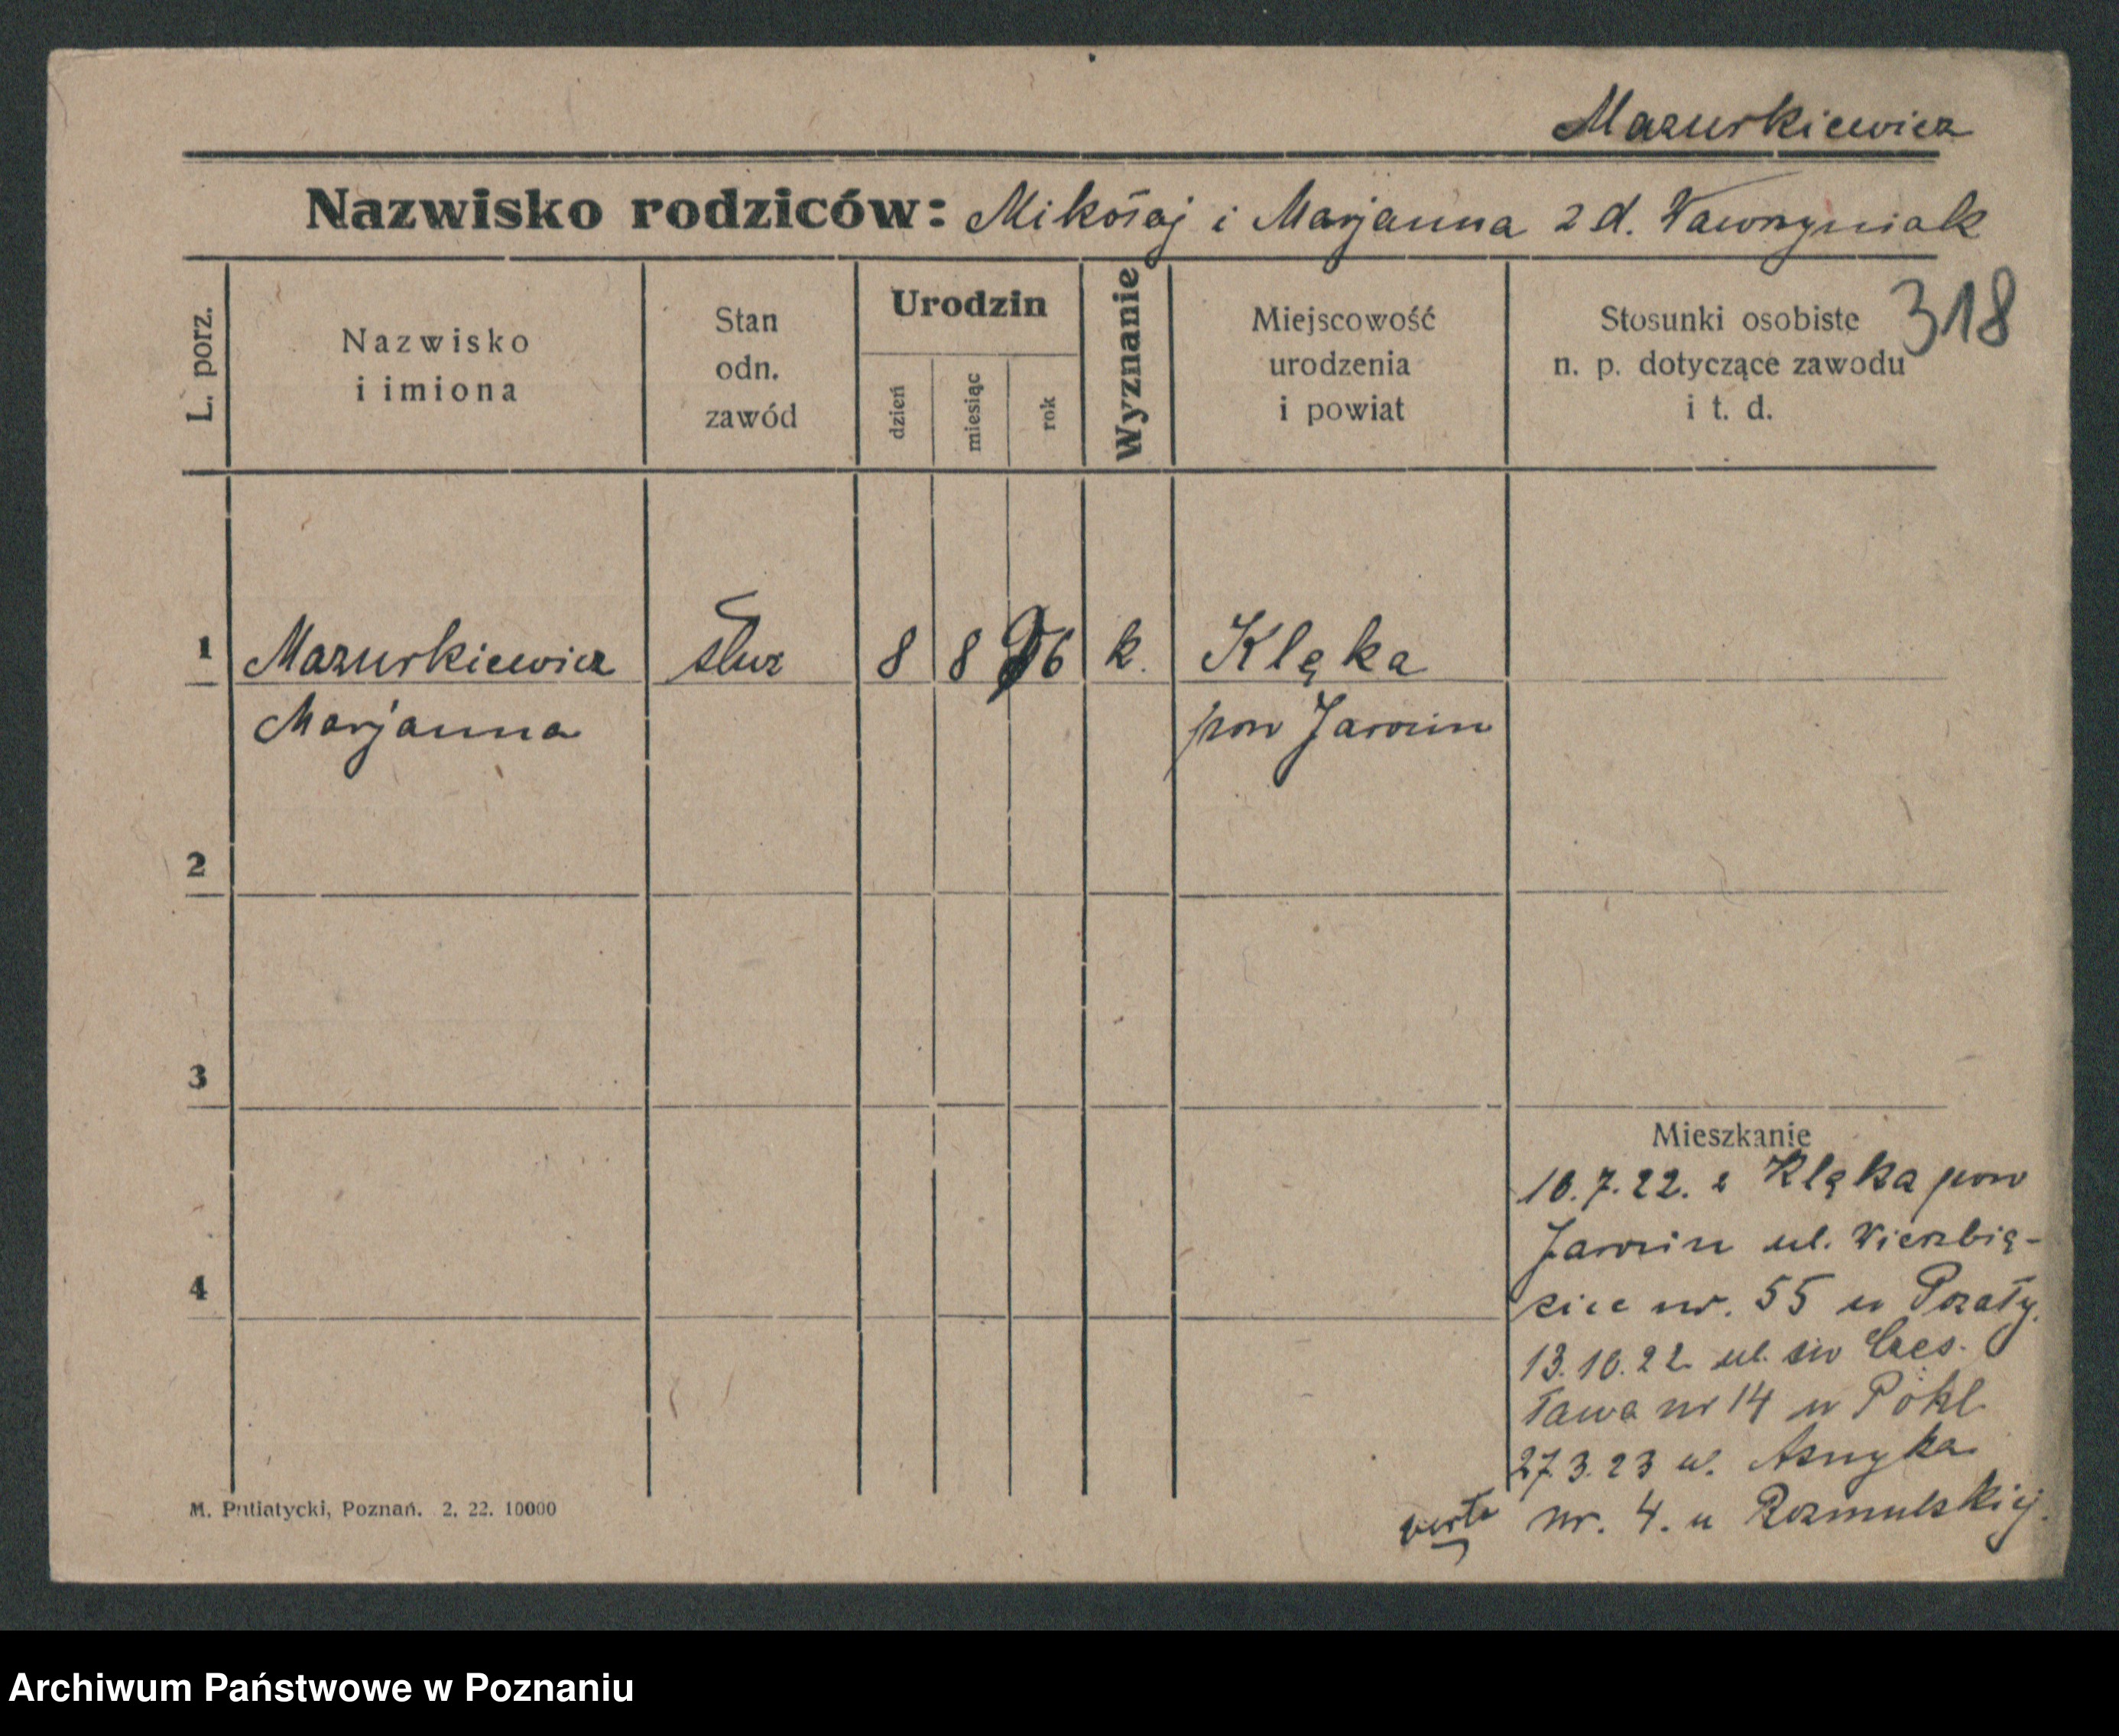 Mazurkiewicz
Nazwisko rodziców: Mikołaj i Marjanna z d. Wawrzyniak
318
L. porz.
Nazwisko
i imiona
Stan
odn.
zawód
Urodzin
dzień
miesiąc
rok
Wyznanie
Miejscowość
urodzenia
i powiat
Stosunki osobiste
n. p. dotyczące zawodu
i t. d.
1 Mazurkiewicz służ 8 8 06 k. Klęka
Marjanna pow Jarocin
2
3
4
Mieszkanie
10.7.22. z Klęka pow
Jarocin ul. Wierzbię-
cice nr. 55 u
13.10.22 ul. św Czes-
ława nr 14 u
27.3.23 ul. Asnyka
nr. 4. u
verte
M. Putiatycki, Poznań. 2. 22. 10000
Archiwum Państwowe w Poznaniu